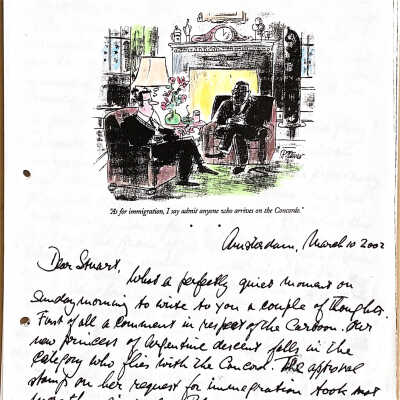 "As for immigration, I say admit anyone who arrives on the Concorde."
Amsterdam, March 10 2002
Dear Stuart, What a perfectly quiet moment on
Sunday morning to write to you a couple of thoughts.
First of all a comment in respect of the Cartoon. Our
new princess of Argentine descent falls in the
category who flies with the Concord. The approval
stamp on her request for immegration took not